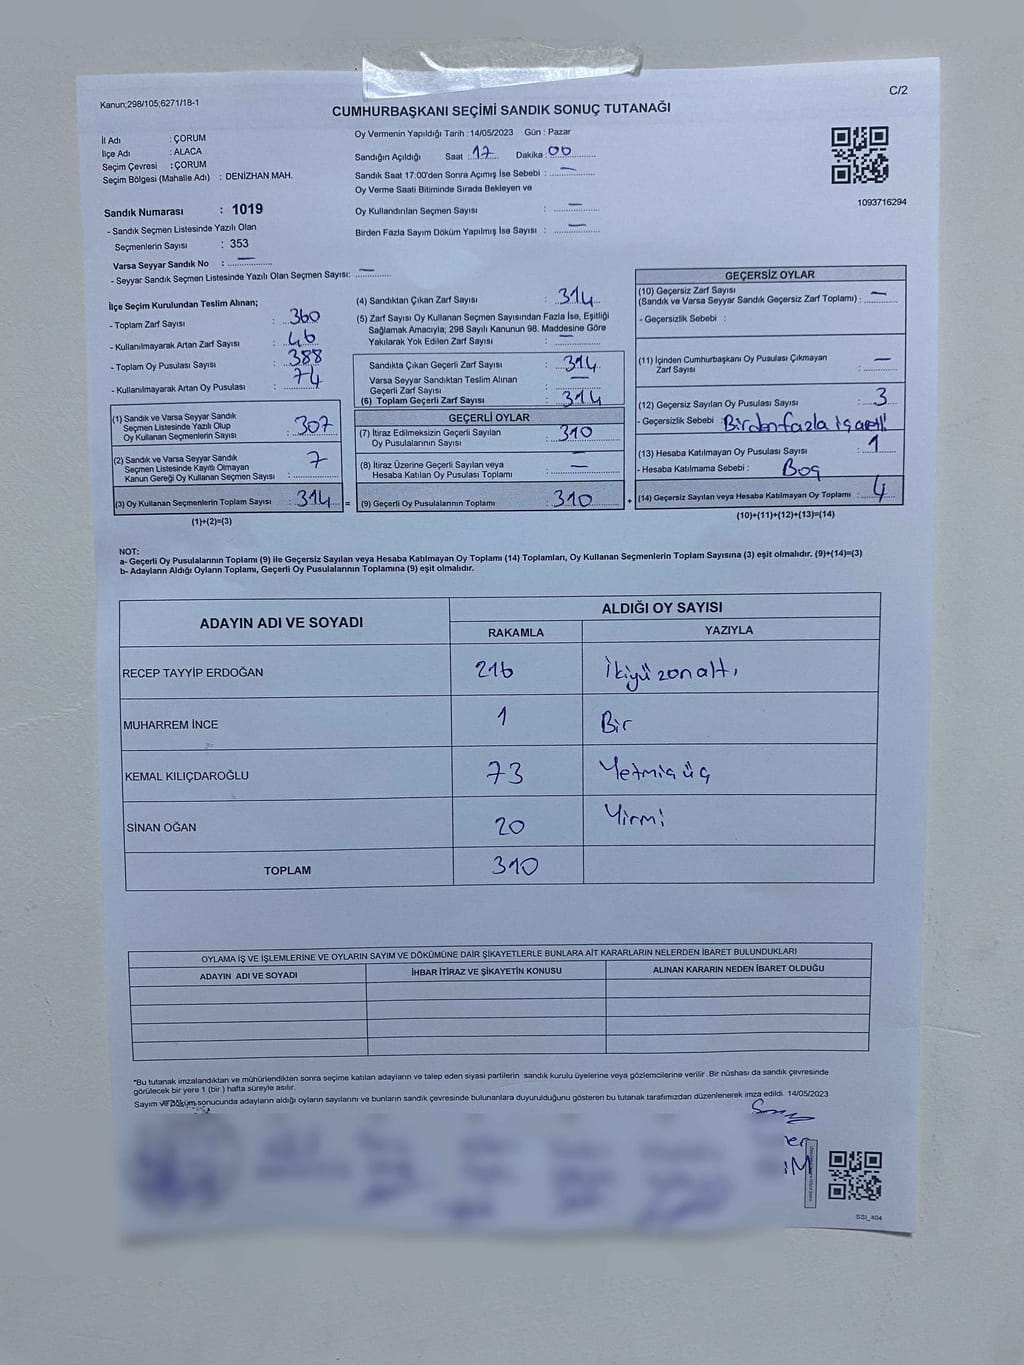 Kanun;298/105;6271/18-1
C/2
CUMHURBAŞKANI SEÇİMİ SANDIK SONUÇ TUTANAĞI
İl Adı : ÇORUM
İlçe Adı : ALACA
Seçim Çevresi : ÇORUM
Seçim Bölgesi (Mahalle Adı) : DENİZHAN MAH.
Sandık Numarası : 1019
- Sandık Seçmen Listesinde Yazılı Olan
Seçmenlerin Sayısı : 353
Varsa Seyyar Sandık No : —
- Seyyar Sandık Seçmen Listesinde Yazılı Olan Seçmen Sayısı: —
Oy Vermenin Yapıldığı Tarih : 14/05/2023 Gün : Pazar
Sandığın Açıldığı Saat : 17 Dakika : 00
Sandık Saat 17:00'den Sonra Açımış İse Sebebi : —
Oy Verme Saati Bitiminde Sırada Bekleyen ve
Oy Kullandırılan Seçmen Sayısı : —
Birden Fazla Sayım Döküm Yapılmış İse Sayısı : —
1093716294
İlçe Seçim Kurulundan Teslim Alınan;
- Toplam Zarf Sayısı : 360
- Kullanılmayarak Artan Zarf Sayısı : 46
- Toplam Oy Pusulası Sayısı : 388
- Kullanılmayarak Artan Oy Pusulası : 74
(1) Sandık ve Varsa Seyyar Sandık
Seçmen Listesinde Yazılı Olup
Oy Kullanan Seçmenlerin Sayısı : 307
(2) Sandık ve Varsa Seyyar Sandık
Seçmen Listesinde Kayıtlı Olmayan
Kanun Gereği Oy Kullanan Seçmen Sayısı : 7
(3) Oy Kullanan Seçmenlerin Toplam Sayısı : 314 =
(1)+(2)=(3)
(4) Sandıktan Çıkan Zarf Sayısı : 314
(5) Zarf Sayısı Oy Kullanan Seçmen Sayısından Fazla İse, Eşitliği
Sağlamak Amacıyla; 298 Sayılı Kanunun 98. Maddesine Göre
Yakılarak Yok Edilen Zarf Sayısı : —
Sandıkta Çıkan Geçerli Zarf Sayısı : 314
Varsa Seyyar Sandıktan Teslim Alınan
Geçerli Zarf Sayısı : —
(6) Toplam Geçerli Zarf Sayısı : 314
GEÇERLİ OYLAR
(7) İtiraz Edilmeksizin Geçerli Sayılan
Oy Pusulalarının Sayısı : 310
(8) İtiraz Üzerine Geçerli Sayılan veya
Hesaba Katılan Oy Pusulası Toplamı : —
(9) Geçerli Oy Pusulalarının Toplamı : 310 +
GEÇERSİZ OYLAR
(10) Geçersiz Zarf Sayısı
(Sandık ve Varsa Seyyar Sandık Geçersiz Zarf Toplamı) : —
- Geçersizlik Sebebi :
(11) İçinden Cumhurbaşkanı Oy Pusulası Çıkmayan
Zarf Sayısı : —
(12) Geçersiz Sayılan Oy Pusulası Sayısı : 3
- Geçersizlik Sebebi : Birden fazla işaretli
(13) Hesaba Katılmayan Oy Pusulası Sayısı : 1
- Hesaba Katılmama Sebebi : Boş
(14) Geçersiz Sayılan veya Hesaba Katılmayan Oy Toplamı : 4
(10)+(11)+(12)+(13)=(14)
NOT:
a- Geçerli Oy Pusulalarının Toplamı (9) ile Geçersiz Sayılan veya Hesaba Katılmayan Oy Toplamı (14) Toplamları, Oy Kullanan Seçmenlerin Toplam Sayısına (3) eşit olmalıdır. (9)+(14)=(3)
b- Adayların Aldığı Oyların Toplamı, Geçerli Oy Pusulalarının Toplamına (9) eşit olmalıdır.
ADAYIN ADI VE SOYADI ALDIĞI OY SAYISI
RAKAMLA YAZIYLA
RECEP TAYYİP ERDOĞAN 216 İkiyüzonaltı
MUHARREM İNCE 1 Bir
KEMAL KILIÇDAROĞLU 73 Yetmişüç
SİNAN OĞAN 20 Yirmi
TOPLAM 310
OYLAMA İŞ VE İŞLEMLERİNE VE OYLARIN SAYIM VE DÖKÜMÜNE DAİR ŞİKAYETLERLE BUNLARA AİT KARARLARIN NELERDEN İBARET BULUNDUKLARI
ADAYIN ADI VE SOYADI İHBAR İTİRAZ VE ŞİKAYETİN KONUSU ALINAN KARARIN NEDEN İBARET OLDUĞU
*Bu tutanak imzalandıktan ve mühürlendikten sonra seçime katılan adayların ve talep eden siyasi partilerin sandık kurulu üyelerine veya gözlemcilerine verilir .Bir nüshası da sandık çevresinde
görülecek bir yere 1 (bir ) hafta süreyle asılır.
Sayım ve Döküm sonucunda adayların aldığı oyların sayılarını ve bunların sandık çevresinde bulunanlara duyurulduğunu gösteren bu tutanak tarafımızdan düzenlenerek imza edildi. 14/05/2023
SSI_404